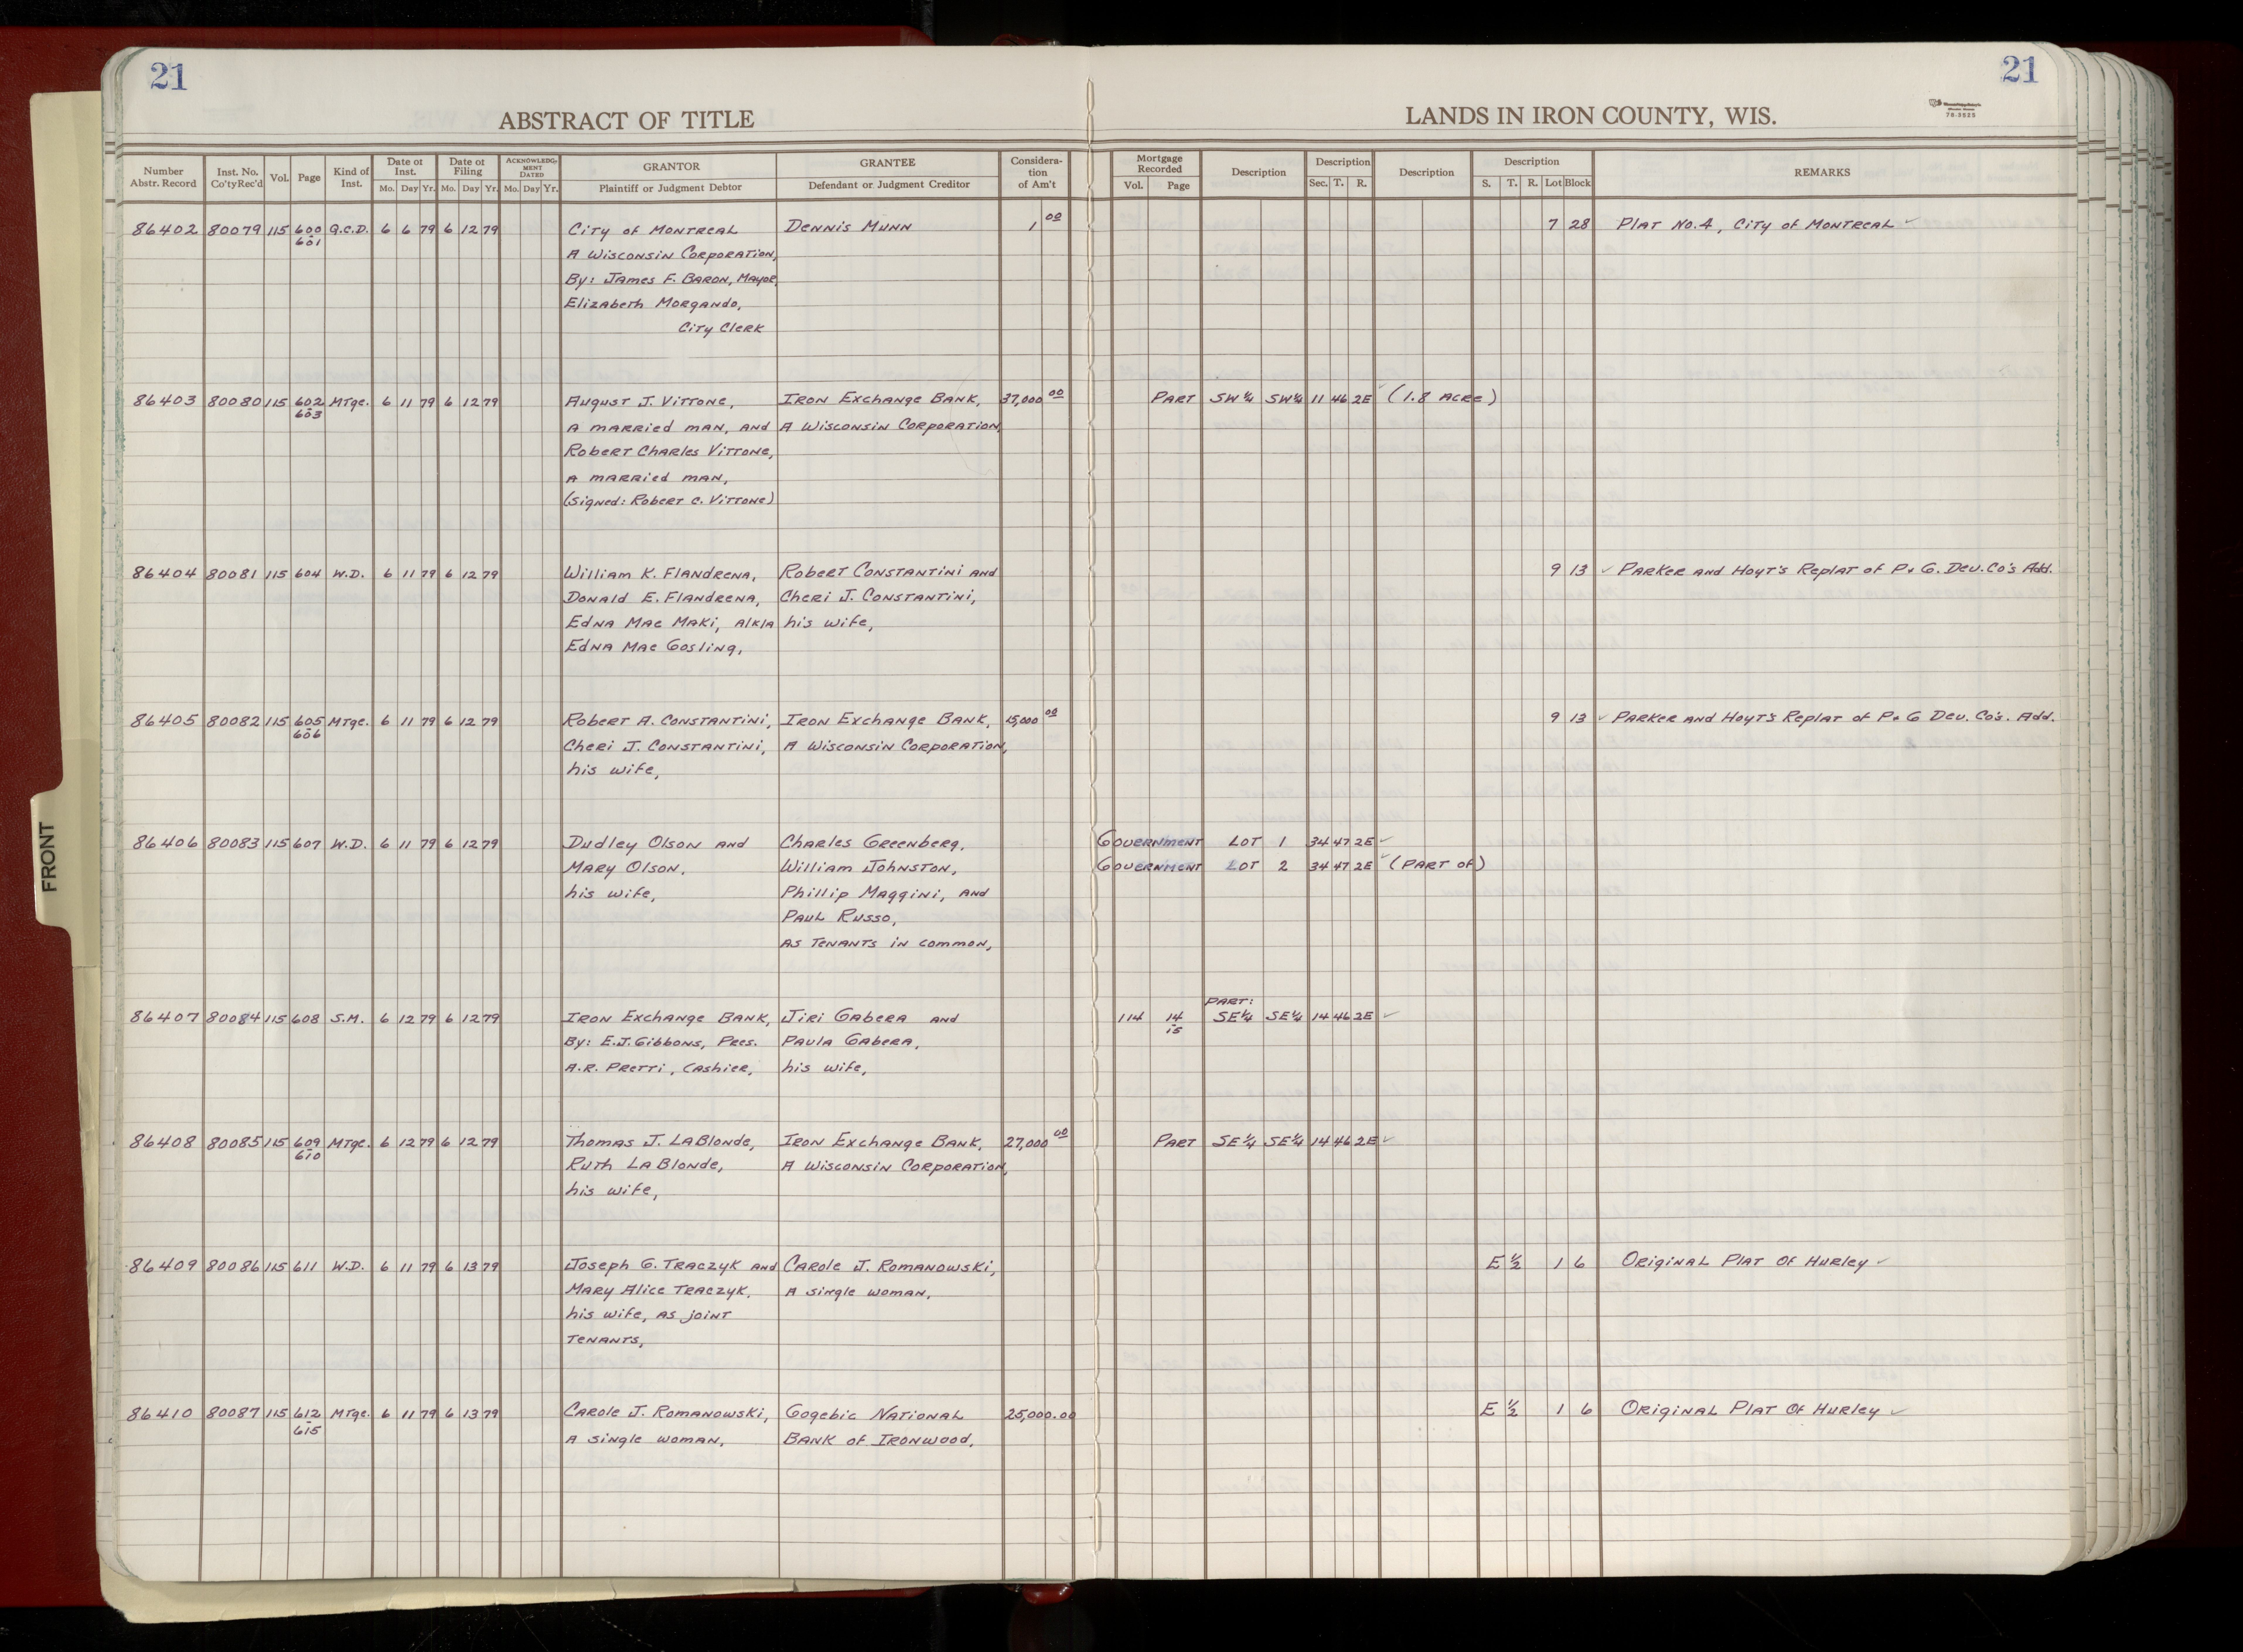 21
21
ABSTRACT OF TITLE
LANDS IN IRON COUNTY, WIS.
78-3525
Number Abstr. Record | Inst. No. Co'ty Rec'd | Vol. | Page | Kind of Inst. | Date of Inst. Mo. Day Yr. | Date of Filing Mo. Day Yr. | ACKNOWLEDGMENT DATED Mo. Day Yr. | GRANTOR Plaintiff or Judgment Debtor | GRANTEE Defendant or Judgment Creditor | Consideration of Am't | Mortgage Recorded Vol. Page | Description | Description Sec. T. R. | Description | Description S. T. R. Lot Block | REMARKS
86402 80079 115 600 Q.C.D. 6 6 79 6 12 79 City of Montreal Dennis Munn 1 00 7 28 Plat No. 4, City of Montreal ✓
601 A Wisconsin Corporation,
By: James F. Baron, Mayor,
Elizabeth Morgando,
City Clerk
86403 80080 115 602 Mtge. 6 11 79 6 12 79 August J. Vittone, Iron Exchange Bank, 37,000 00 Part SW¼ SW¼ 11 46 2E ✓ (1.8 Acre)
603 A married man, and A Wisconsin Corporation,
Robert Charles Vittone,
A married man,
(Signed: Robert C. Vittone)
86404 80081 115 604 W.D. 6 11 79 6 12 79 William K. Flandrena, Robert Constantini and 9 13 ✓ Parker and Hoyt's Replat of P. & G. Dev. Co's Add.
Donald E. Flandrena, Cheri J. Constantini,
Edna Mae Maki, A/K/A his wife,
Edna Mae Gosling,
86405 80082 115 605 Mtge. 6 11 79 6 12 79 Robert A. Constantini, Iron Exchange Bank, 15,000 00 9 13 ✓ Parker and Hoyt's Replat of P & G Dev. Co's. Add.
606 Cheri J. Constantini, A Wisconsin Corporation,
his wife,
86406 80083 115 607 W.D. 6 11 79 6 12 79 Dudley Olson and Charles Greenberg, Government Lot 1 34 47 2E ✓
Mary Olson, William Johnston, Government Lot 2 34 47 2E ✓ (Part of)
his wife, Phillip Maggini, and
Paul Russo,
As tenants in common,
Part:
86407 80084 115 608 S.M. 6 12 79 6 12 79 Iron Exchange Bank, Jiri Gabera and 114 14 SE¼ SE¼ 14 46 2E ✓
By: E.J. Gibbons, Pres. Paula Gabera, 15
A.R. Pretti, Cashier, his wife,
86408 80085 115 609 Mtge. 6 12 79 6 12 79 Thomas J. LaBlonde, Iron Exchange Bank, 27,000 00 Part SE¼ SE¼ 14 46 2E ✓
610 Ruth LaBlonde, A Wisconsin Corporation,
his wife,
86409 80086 115 611 W.D. 6 11 79 6 13 79 Joseph G. Traczyk and Carole J. Romanowski, E ½ 1 6 Original Plat Of Hurley ✓
Mary Alice Traczyk, A single woman,
his wife, as joint
tenants,
86410 80087 115 612 Mtge. 6 11 79 6 13 79 Carole J. Romanowski, Gogebic National 25,000.00 E ½ 1 6 Original Plat Of Hurley ✓
615 A single woman, Bank of Ironwood,
FRONT